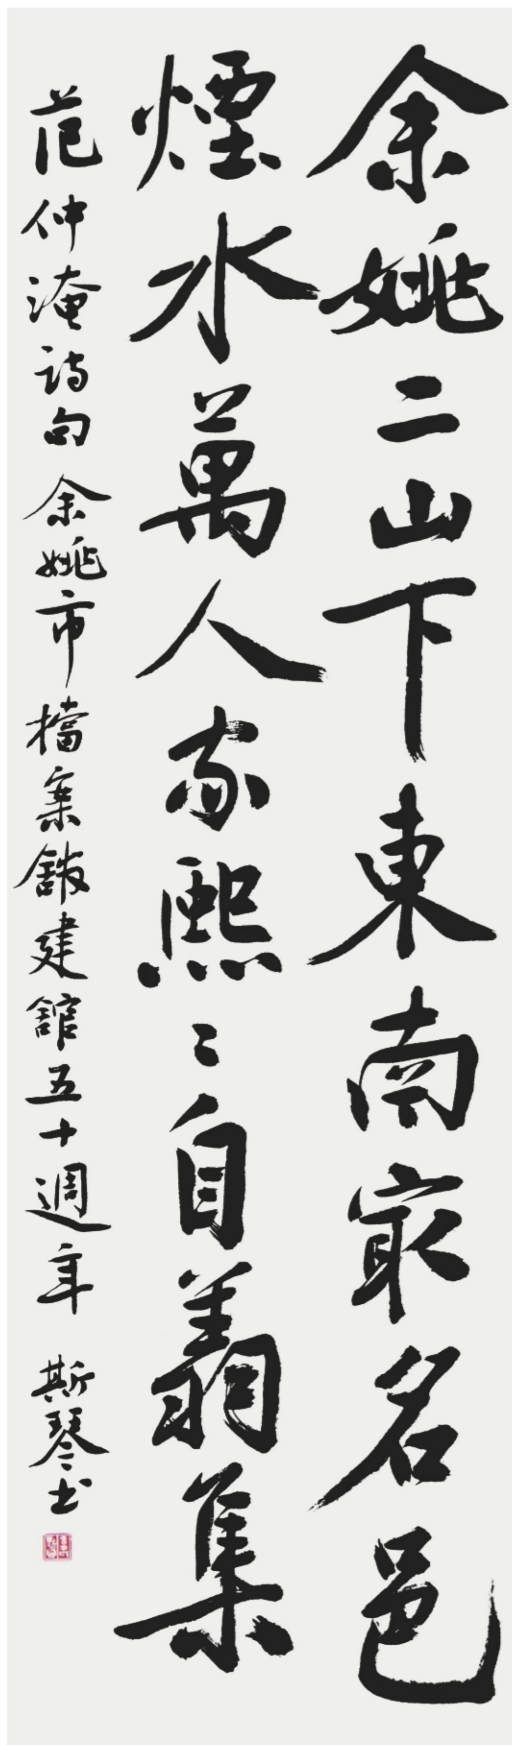 余姚二山下東南㝡名邑
煙水萬人家熙〻自翔集
范仲淹詩句余姚市檔案舘建舘五十週年 斯琴书